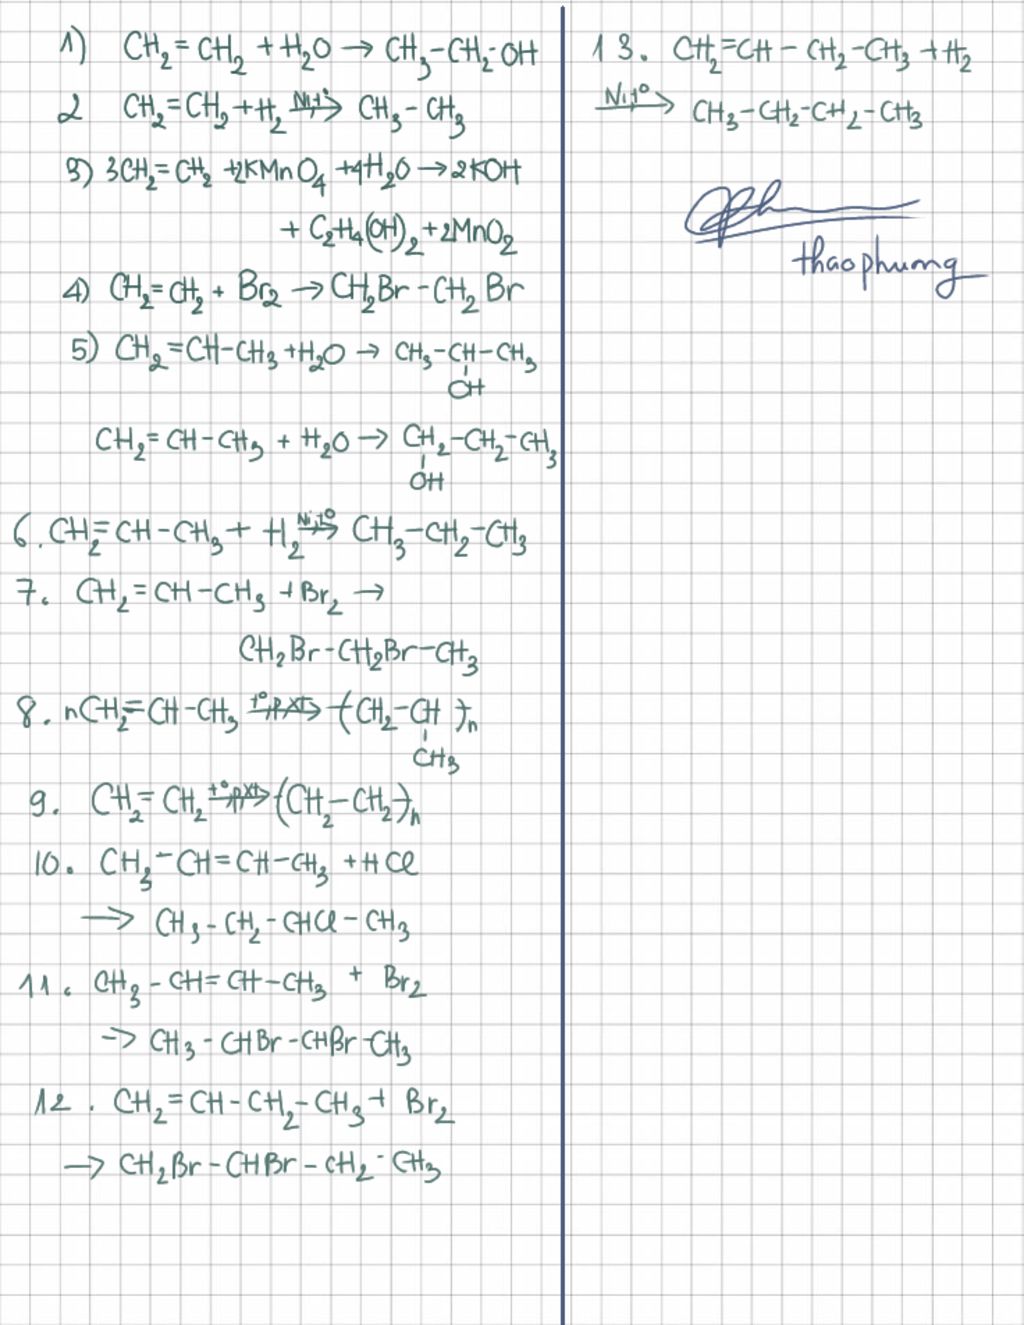 1) CH₂=CH₂ + H₂O → CH₃-CH₂-OH
2 CH₂=CH₂ + H₂ Ni,t° → CH₃-CH₃
3) 3CH₂=CH₂ + 2KMnO₄ + 4H₂O → 2KOH
+ C₂H₄(OH)₂ + 2MnO₂
4) CH₂=CH₂ + Br₂ → CH₂Br-CH₂Br
5) CH₂=CH-CH₃ + H₂O → CH₃-CH-CH₃
OH
CH₂=CH-CH₃ + H₂O → CH₂-CH₂-CH₃
OH
6. CH₂=CH-CH₃ + H₂ Ni,t° → CH₃-CH₂-CH₃
7. CH₂=CH-CH₃ + Br₂ →
CH₂Br-CH₂Br-CH₃
8. nCH₂=CH-CH₃ t°,p,xt → (CH₂-CH)ₙ
CH₃
9. CH₂=CH₂ t°,p,xt → (CH₂-CH₂)ₙ
10. CH₃-CH=CH-CH₃ + HCl
→ CH₃-CH₂-CHCl-CH₃
11. CH₃-CH=CH-CH₃ + Br₂
→ CH₃-CHBr-CHBr-CH₃
12. CH₂=CH-CH₂-CH₃ + Br₂
→ CH₂Br-CHBr-CH₂-CH₃
13. CH₂=CH-CH₂-CH₃ + H₂
Ni,t° → CH₃-CH₂-CH₂-CH₃
thaophuong